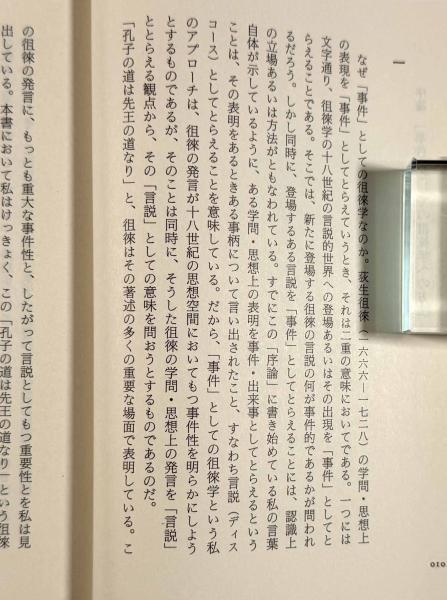 一
なぜ「事件」としての徂徠学なのか。荻生徂徠（一六六六―一七二八）の学問・思想上
の表現を「事件」としてとらえていうとき、それは二重の意味においてである。一つには
文字通り、徂徠学の十八世紀の言説的世界への登場あるいはその出現を「事件」としてと
らえることである。そこでは、新たに登場する徂徠の言説の何が事件的であるかが問われ
るだろう。しかし同時に、登場するある言説を「事件」としてとらえることには、認識上
の立場あるいは方法がともなわれている。すでにこの「序論」に書き始めている私の言葉
自体が示しているように、ある学問・思想上の表明を事件・出来事としてとらえるという
ことは、その表明をあるときある事柄について言い出されたこと、すなわち言説（ディス
コース）としてとらえることを意味している。だから、「事件」としての徂徠学という私
のアプローチは、徂徠の発言が十八世紀の思想空間においてもつ事件性を明らかにしよう
とするものであるが、そのことは同時に、そうした徂徠の学問・思想上の発言を「言説」
ととらえる観点から、その「言説」としての意味を問おうとするものであるのだ。
「孔子の道は先王の道なり」と、徂徠はその著述の多くの重要な場面で表明している。こ
010
の徂徠の発言に、もっとも重大な事件性と、したがって言説としてもつ重要性とを私は見
出している。本書において私はけっきょく、この「孔子の道は先王の道なり」という徂徠